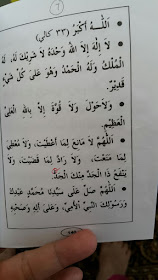 اَللّٰهُ أَكْبَرُ (٣٣ كالي)
لَا إِلٰهَ إِلَّا اللهُ وَحْدَهُ لَا شَرِيْكَ لَهُ، لَهُ
الْمُلْكُ وَلَهُ الْحَمْدُ وَهُوَ عَلَى كُلِّ شَيْءٍ
قَدِيْرٌ.
وَلَاحَوْلَ وَلَا قُوَّةَ إِلَّا بِاللهِ الْعَلِيِّ
الْعَظِيْمِ.
اَللّٰهُمَّ لَا مَانِعَ لِمَا أَعْطَيْتَ، وَلَا مُعْطِيَ
لِمَا مَنَعْتَ، وَلَا رَادَّ لِمَا قَضَيْتَ، وَلَا
يَنْفَعُ ذَا الْجَدِّ مِنْكَ الْجَدُّ.
اَللّٰهُمَّ صَلِّ عَلَى سَيِّدِنَا مُحَمَّدٍ عَبْدِكَ
وَرَسُوْلِكَ النَّبِيِّ الْأُمِّيِّ، وَعَلَى آلِهِ وَصَحْبِهِ